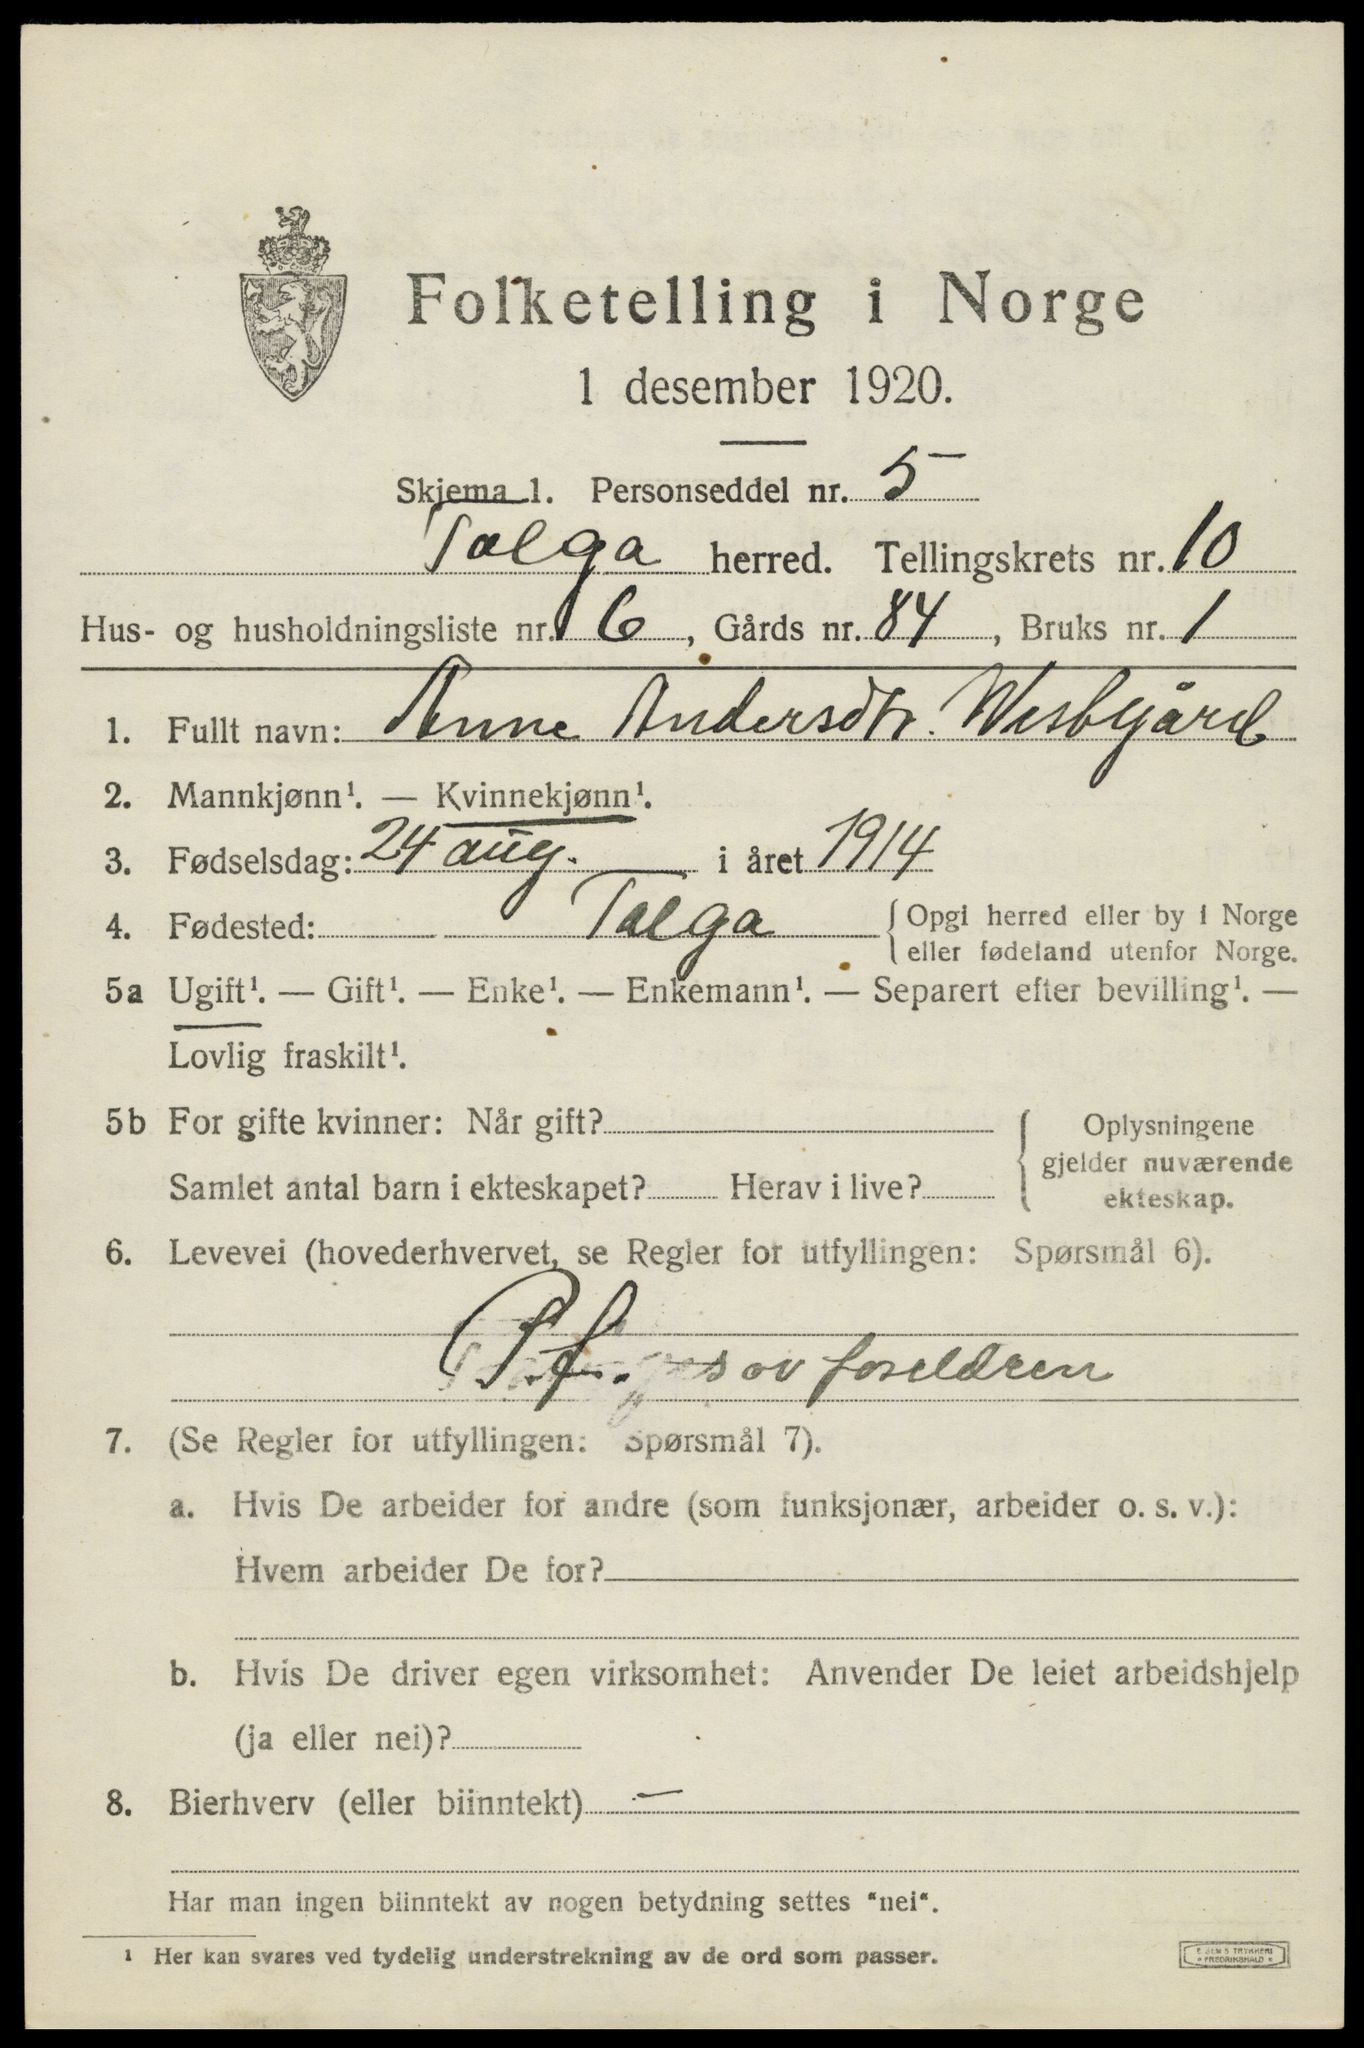 Folketelling i Norge
1 desember 1920.
Skjema 1. Personseddel nr. 5
Tolga herred. Tellingskrets nr. 10
Hus- og husholdningsliste nr. 6, Gårds nr. 84, Bruks nr. 1
1. Fullt navn: Anne Andersdtr.
2. Mannkjønn¹. — Kvinnekjønn¹.
3. Fødselsdag: 24 aug. i året 1914
4. Fødested: Tolga { Opgi herred eller by i Norge
eller fødeland utenfor Norge.
5a Ugift¹. — Gift¹. — Enke¹. — Enkemann¹. — Separert efter bevilling¹. —
Lovlig fraskilt¹.
5b For gifte kvinner: Når gift? { Oplysningene
gjelder nuværende
Samlet antal barn i ekteskapet? Herav i live? ekteskap.
6. Levevei (hovederhvervet, se Regler for utfyllingen: Spørsmål 6).
P. f. av foreldren
7. (Se Regler for utfyllingen: Spørsmål 7).
a. Hvis De arbeider for andre (som funksjonær, arbeider o. s. v.):
Hvem arbeider De for?
b. Hvis De driver egen virksomhet: Anvender De leiet arbeidshjelp
(ja eller nei)?
8. Bierhverv (eller biinntekt) —
Har man ingen biinntekt av nogen betydning settes "nei".
¹ Her kan svares ved tydelig understrekning av de ord som passer.
TRYKKERI
FREDRIKSHALD